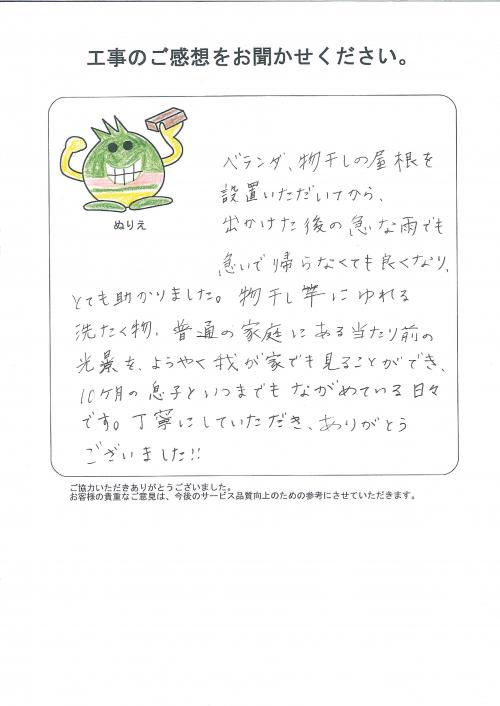 工事のご感想をお聞かせください。
ベランダ、物干しの屋根を
設置いただいてから、
出かけた後の急な雨でも
急いで帰らなくても良くなり、
とても助かりました。物干し竿にゆれる
洗たく物、普通の家庭にある当たり前の
光景を、ようやく我が家でも見ることができ、
10ヶ月の息子といつまでもながめている日々
です。丁寧にしていただき、ありがとう
ございました!!
ぬりえ
ご協力いただきありがとうございました。
お客様の貴重なご意見は、今後のサービス品質向上のための参考にさせていただきます。